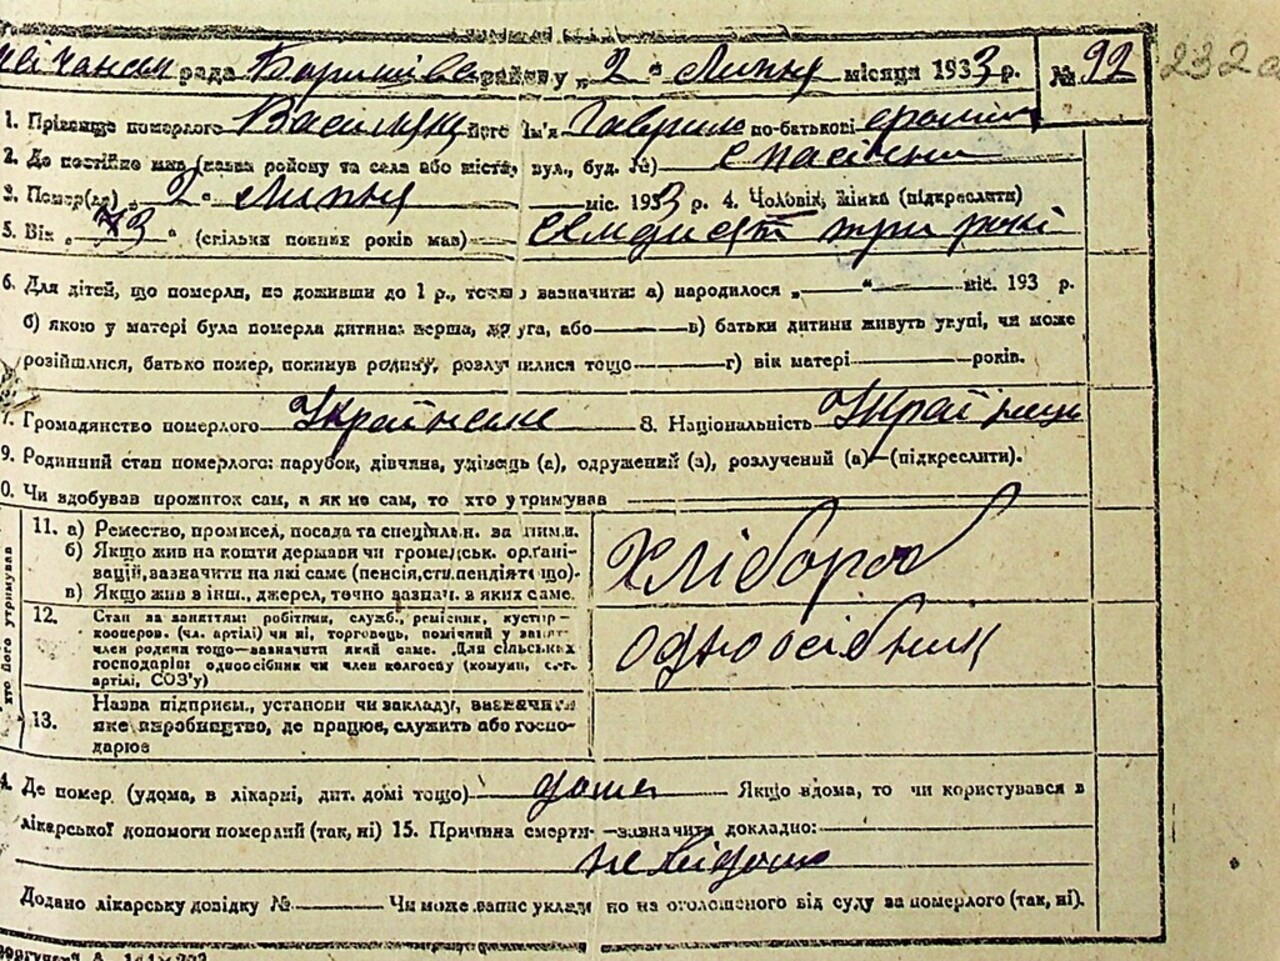 рада Баришівс району „2" Липня місяця 1933 р. № 92 232
1. Прізвище померлого Василяц його ім'я Гаврило по-батькові
2. Де постійно жив (назва району та села або міста, вул., буд. №)
3. Помер(ла) „2" Липня міс. 1933 р. 4. Чоловік, жінка (підкреслити)
5. Вік „73" (скільки повних років мав) Семдисят три рокі
6. Для дітей, що померли, не доживши до 1 р., точно зазначити: а) народилося „ " міс. 193 р.
б) якою у матері була померла дитина: перша, друга, або в) батьки дитини живуть укупі, чи може
розійшлися, батько помер, покинув родину, розлучилися тощо г) вік матері років.
7. Громадянство померлого Українське 8. Національність Українец
9. Родинний стан померлого: парубок, дівчина, удівець (а), одружений (а), розлучений (а)—(підкреслити).
0. Чи здобував прожиток сам, а як не сам, то хто утримував
хто його утримував
11. а) Ремество, промисел, посада та спеціяльн. за ними.
б) Якщо жив на кошти держави чи громадськ. орґані-
зацій, зазначити на які саме (пенсія, стипендія тощо).
в) Якщо жив з інш., джерел, точно зазнач. з яких саме.
Хлібороб
12. Стан за заняттям: робітник, служб., ремісник, кустар-
кооперов. (чл. артілі) чи ні, торговець, помічний у занят.
член родини тощо—зазначити який саме. Для сільських
господарів: одноосібник чи член колгоспу (комуни, с.-г.
артілі, СОЗ'у)
одноосібник
13. Назва підприєм., установи чи закладу, зазначити
яке виробництво, де працює, служить або госпо-
дарює
4. Де помер (удома, в лікарні, дит. домі тощо) дома Якщо вдома, то чи користувався в
лікарської допомоги померлий (так, ні) 15. Причина смерти—зазначити докладно:
невідома
Додано лікарську довідку № Чи може запис укладено на оголошеного від суду за померлого (так, ні).